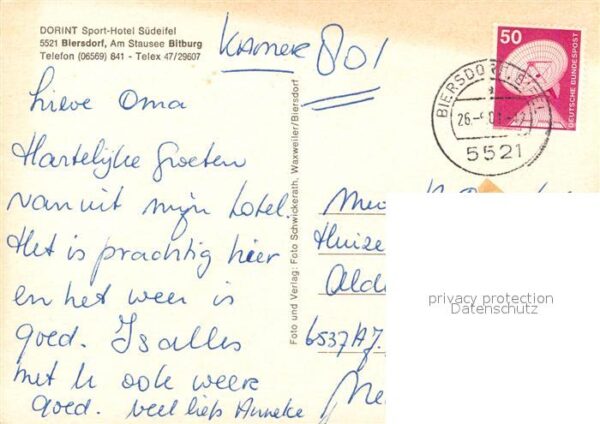 DORINT Sport-Hotel Südeifel
5521 Biersdorf, Am Stausee Bitburg
Telefon (06569) 841 - Telex 47/29607
Kamer 801
Lieve Oma
Hartelijke Groeten
vanuit mijn hotel.
Het is prachtig hier
en het weer is
goed. Is alles
met U ook weer
goed. veel liefs Anneke
Foto und Verlag: Foto Schwickerath, Waxweiler/Biersdorf
50
DEUTSCHE BUNDESPOST
BIERSDORF
5521
Huize
Alde
6537 AJ.
privacy protection
Datenschutz